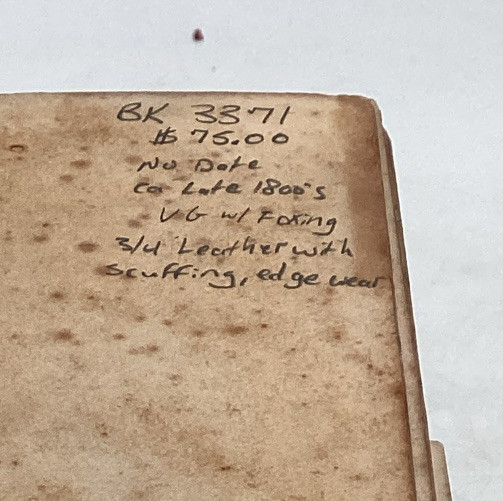 BK 3371
$ 75.00
No Date
ca Late 1800's
VG w/ Foxing
3/4 Leather with
scuffing, edge wear